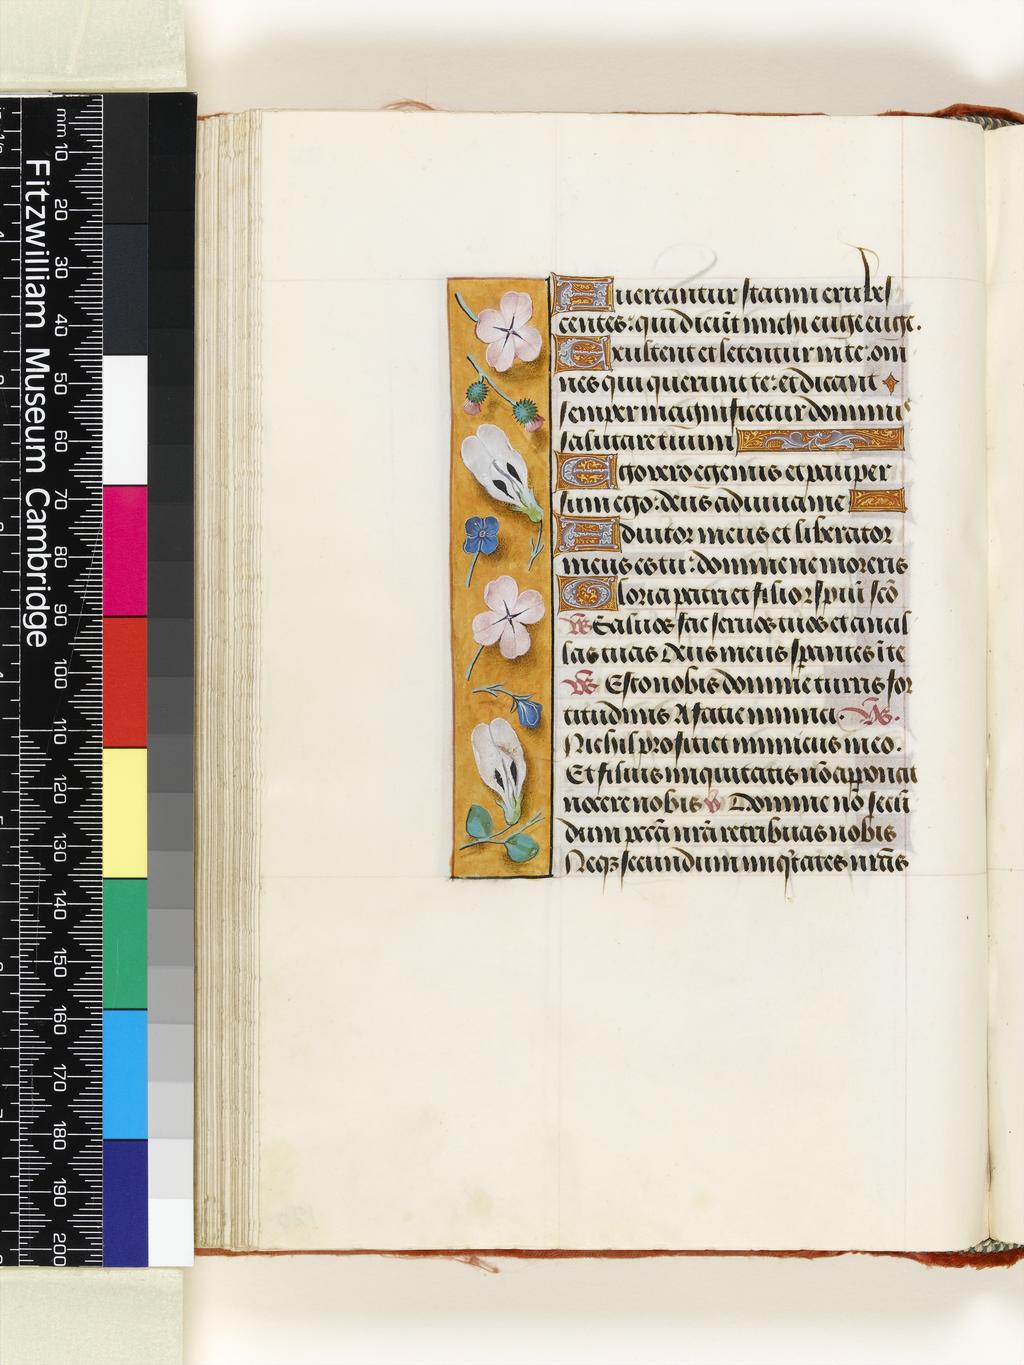 Fitzwilliam Museum Cambridge
mm 10 20 30 40 50 60 70 80 90 100 110 120 130 140 150 160 170 180 190 200
Auertantur statim erubes
centes: qui dicūt michi euge euge.
Exultent et letentur in te: om
nes qui querunt te: et dicant
semper magnificetur dominus
salutare tuum
Ego vero egenus et pauper
sum ego: deus adiuua me
Adiutor meus et liberator
meus es tu: domine ne moreris
Gloria patri et filio ⁊ spiū scō
Vs Saluos fac seruos tuos et ancil
las tuas Deus meus sperantes ī te
Vs Esto nobis domine turris for
titudinis A facie inimici. Vs.
Nichil proficiet inimicus in eo.
Et filius iniquitatis nō apponat
nocere nobis V Domine nō secū
dum peccā nrā retribuas nobis
Neqꝫ secundum iniqtates nrās